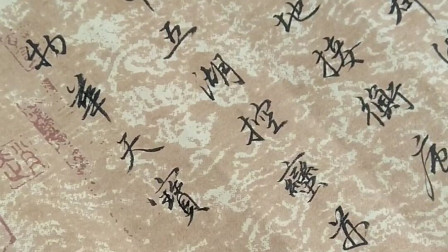 地接衡庐
五湖控蠻荆
物華天寶